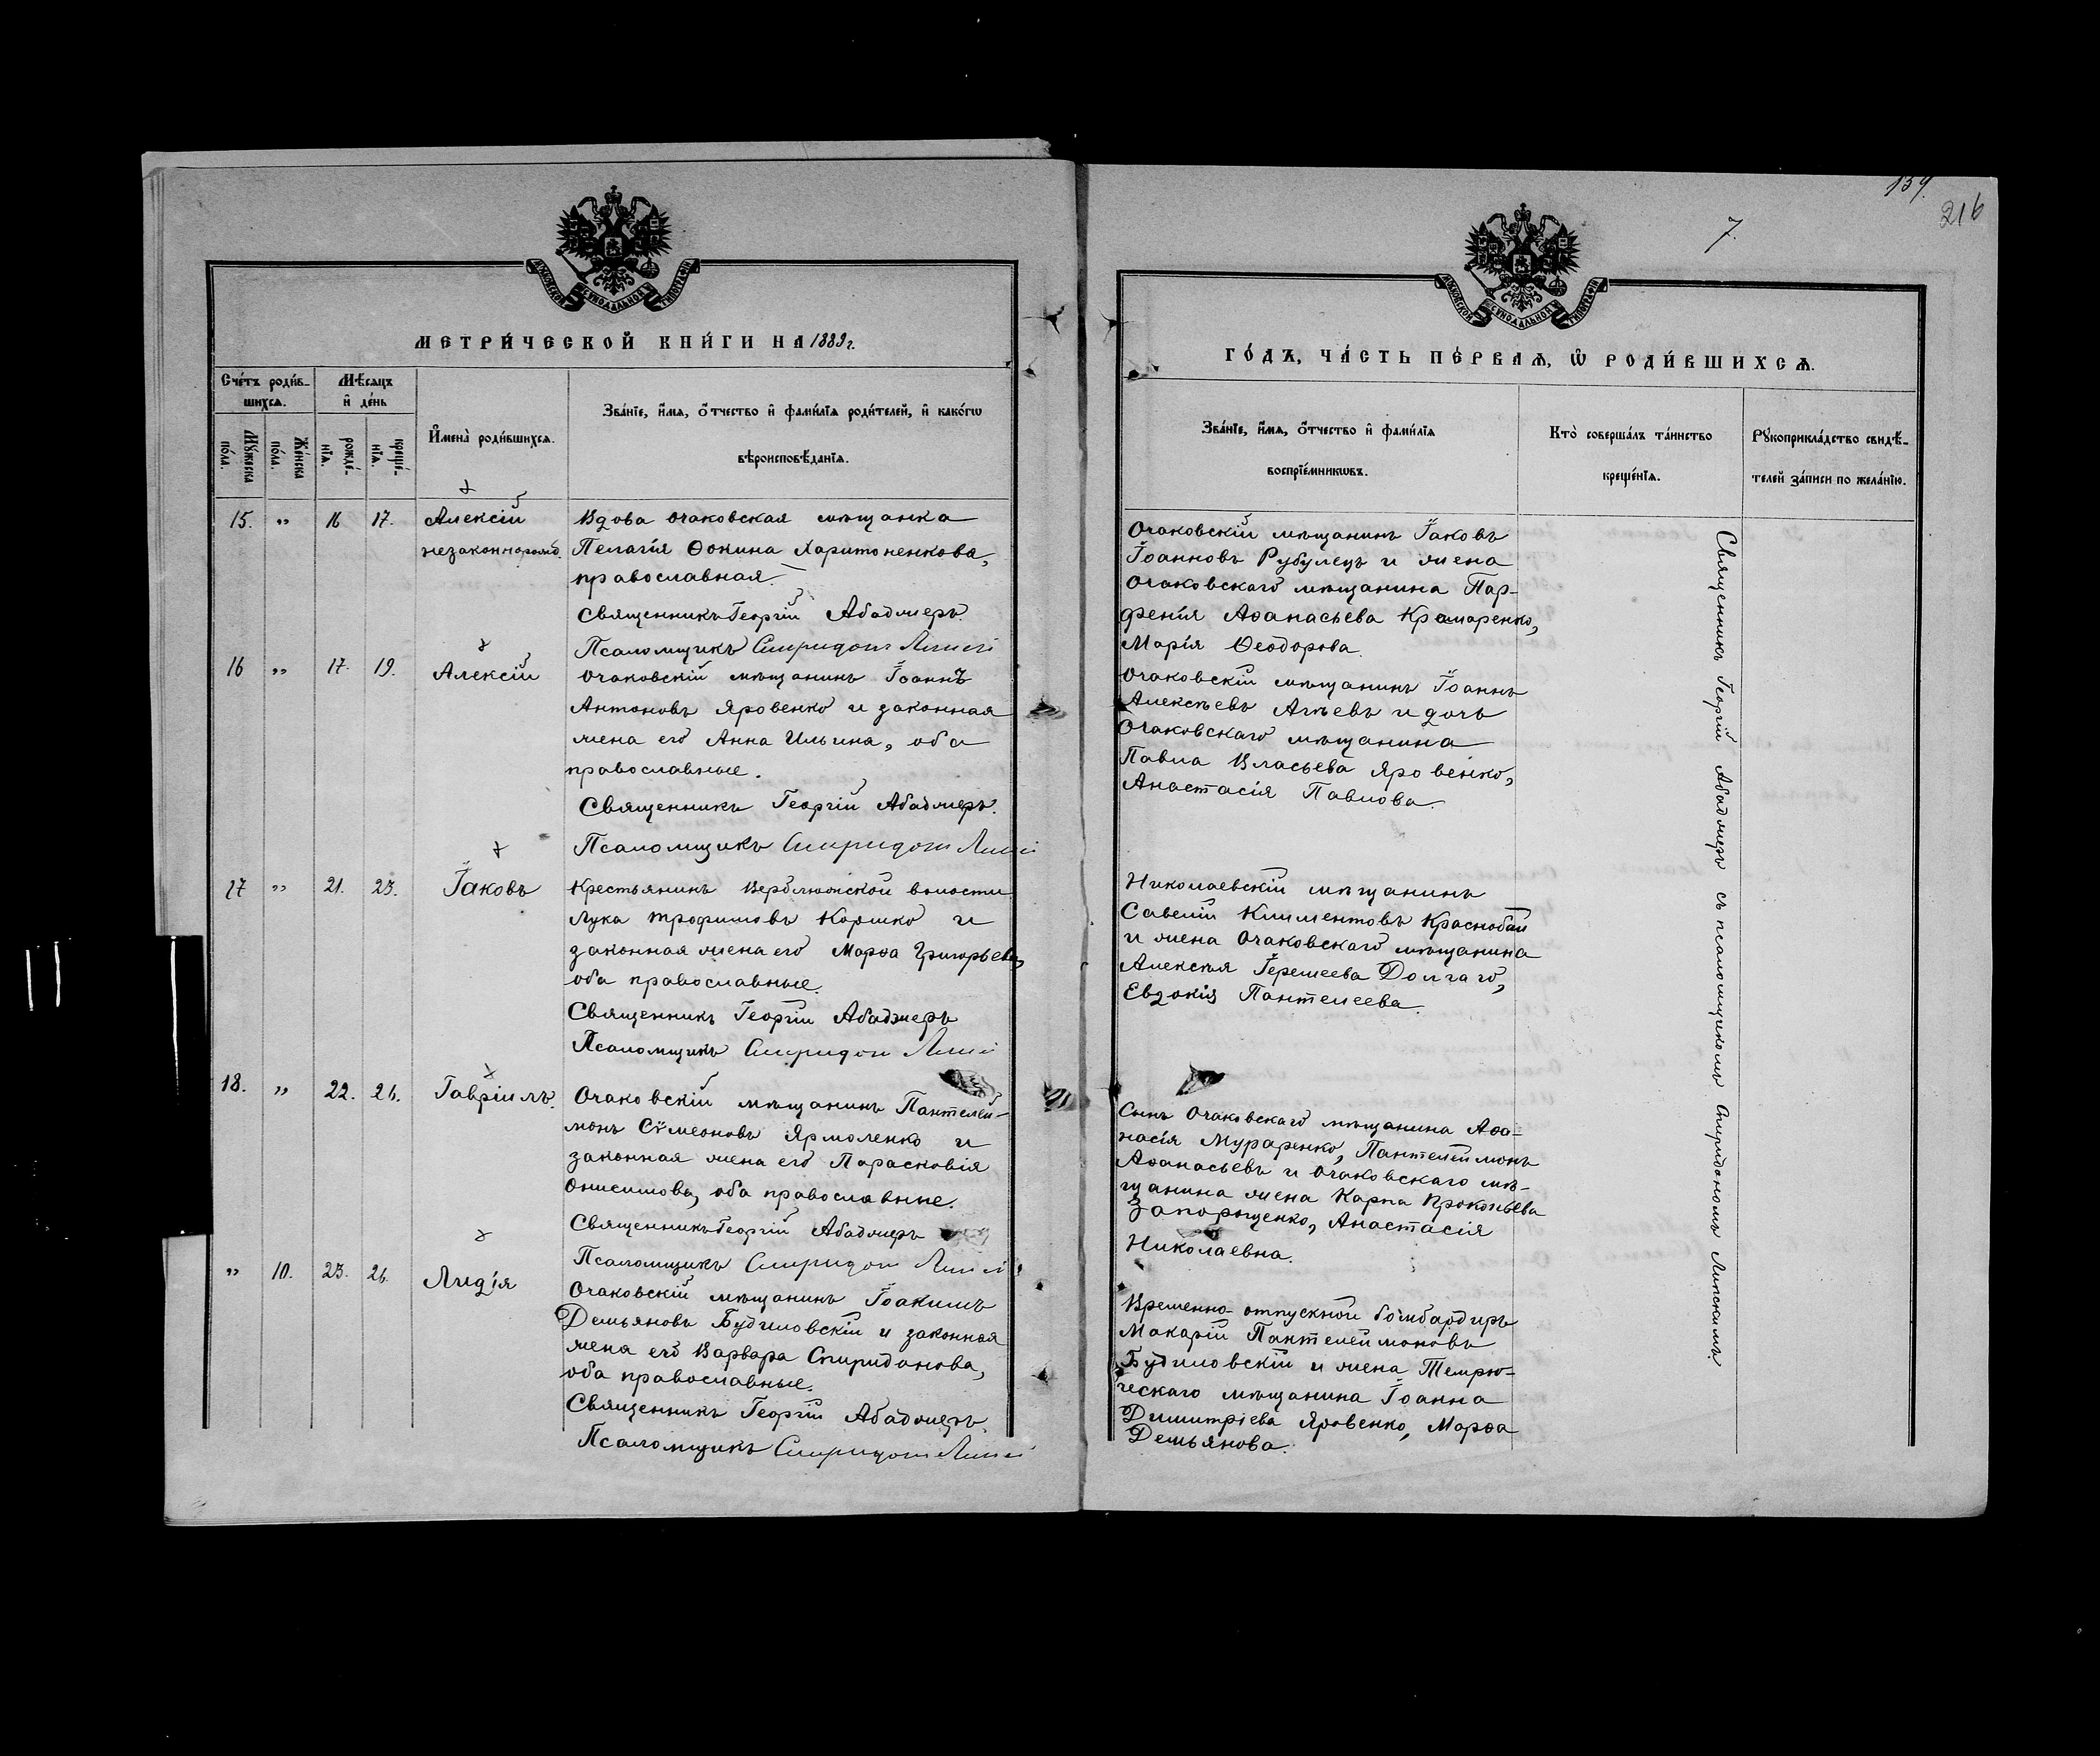 МОСКОВСКОЙ СѴНОДАЛЬНОЙ ТИПОГРАФІИ
МЕТРИ́ЧЕСКОЙ КНИ́ГИ НА 1889 г.
Сче́тъ роди́в-
шихсѧ.
Мѣ́сѧцъ
и҆ де́нь
Мꙋ́жеска
по́ла.
Же́нска
по́ла.
рожде́-
нїѧ.
креще́-
нїѧ.
И҆мена̀ роди́вшихсѧ.
Зва́нїе, и҆́мѧ, ѻ҆́тчество и҆ фами́лїѧ роди́телей, и҆ како́гѡ
вѣроисповѣ́данїѧ.
15. „ 16 17. Алексій
незаконнорожд.
Вдова очаковская мѣщанка
Пелагія Ѳокина Харитоненкова,
православная.
Священникъ Георгій Абаджеръ.
Псаломщикъ Спиридон
16 „ 17. 19. Алексій
Очаковскій мѣщанинъ Іоаннъ
Антоновъ Яровенко и законная
жена его Анна Ильина, оба
православные.
Священникъ Георгій Абаджеръ.
Псаломщикъ Спиридон
17 „ 21. 23. Іаковъ
Крестьянинъ Верблюжской волости
Лука Трофимовъ Коршко и
законная жена его Марѳа Григорьева,
оба православные.
Священникъ Георгій Абаджеръ
Псаломщикъ Спиридон
18. „ 22. 26. Гавріилъ.
Очаковскій мѣщанинъ Пантелей-
монъ Сѵмеоновъ Ярмоленко и
законная жена его Парасковія
Онисимова, оба православные.
Священникъ Георгій Абаджеръ
Псаломщикъ Спиридон
„ 10. 23. 26. Лидія
Очаковскій мѣщанинъ Іоакимъ
Демьяновъ Будиловскій и законная
жена его Варвара Спиридонова,
оба православные.
Священникъ Георгій Абаджеръ
Псаломщикъ Спиридон
7.
159.
216
МОСКОВСКОЙ СѴНОДАЛЬНОЙ ТИПОГРАФІИ
ГО́ДЪ, ЧА́СТЬ ПЕ́РВАѦ, Ѽ РОДИ́ВШИХСѦ.
Зва́нїе, и҆́мѧ, ѻ҆́тчество и҆ фами́лїѧ
воспрїе́мникѡвъ.
Кто̀ соверша́лъ та́инство
креще́нїѧ.
Рꙋкоприкла́дство свидѣ́-
телей за́писи по жела́нїю.
Очаковскій мѣщанинъ Іаковъ
Іоанновъ Рубулецъ и жена
Очаковскаго мѣщанина Пар-
фенія Аѳанасьева Крамаренко,
Марія Ѳеодорова.
Очаковскій мѣщанинъ Іоаннъ
Алексѣевъ Агѣевъ и дочь
Очаковскаго мѣщанина
Павла Власьева Яровенко,
Анастасія Павлова.
Николаевскій мѣщанинъ
Савелій Климентовъ Краснобай
и жена Очаковскаго мѣщанина
Алексѣя Іеремеева Долгаго,
Евдокія Пантелеева.
Сынъ Очаковскаго мѣщанина Аѳа-
насія Мураренко, Пантелеймонъ
Аѳанасьевъ и Очаковскаго мѣ-
щанина жена Карпа Прокопьева
Запорощенко, Анастасія
Николаевна.
Временно-отпускной бомбардиръ
Макарій Пантелеймоновъ
Будиловскій и жена Темрю-
ческаго мѣщанина Іоанна
Димитріева Яровенко, Марѳа
Демьянова.
Священникъ Георгій Абаджеръ съ псаломщикомъ Спиридономъ Липскимъ.